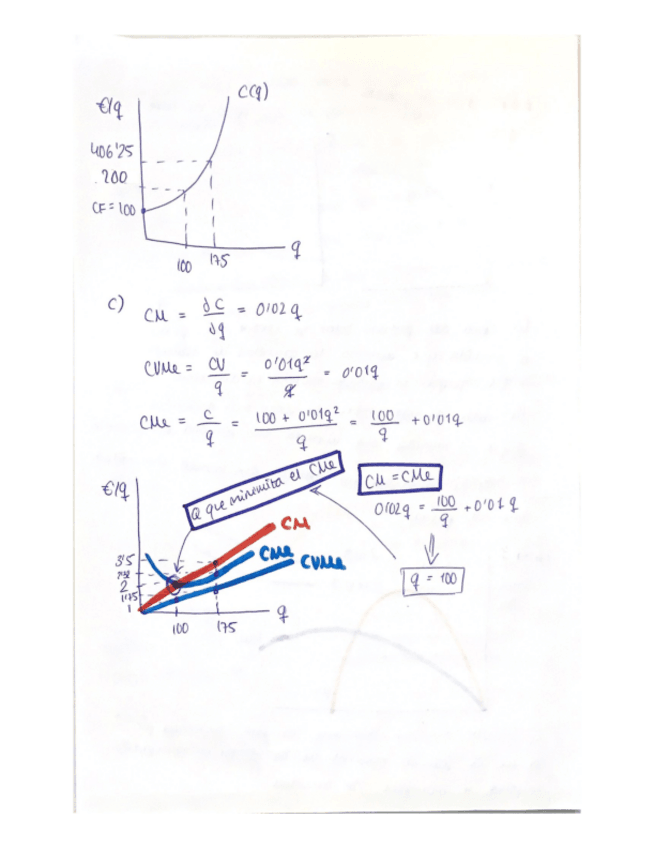 C(q)
€/q
406'25
200
CF = 100
q
100 175
c) CM = ∂C/∂q = 0'02q
CVMe = CV/q = 0'01q²/q = 0'01q
CMe = C/q = 100 + 0'01q²/q = 100/q + 0'01q
€/q
Q que minimiza el CMe
CM = CMe
0'02q = 100/q + 0'01q
q = 100
CM
CMe
CVMe
3'5
2
1'75
1
q
100 175